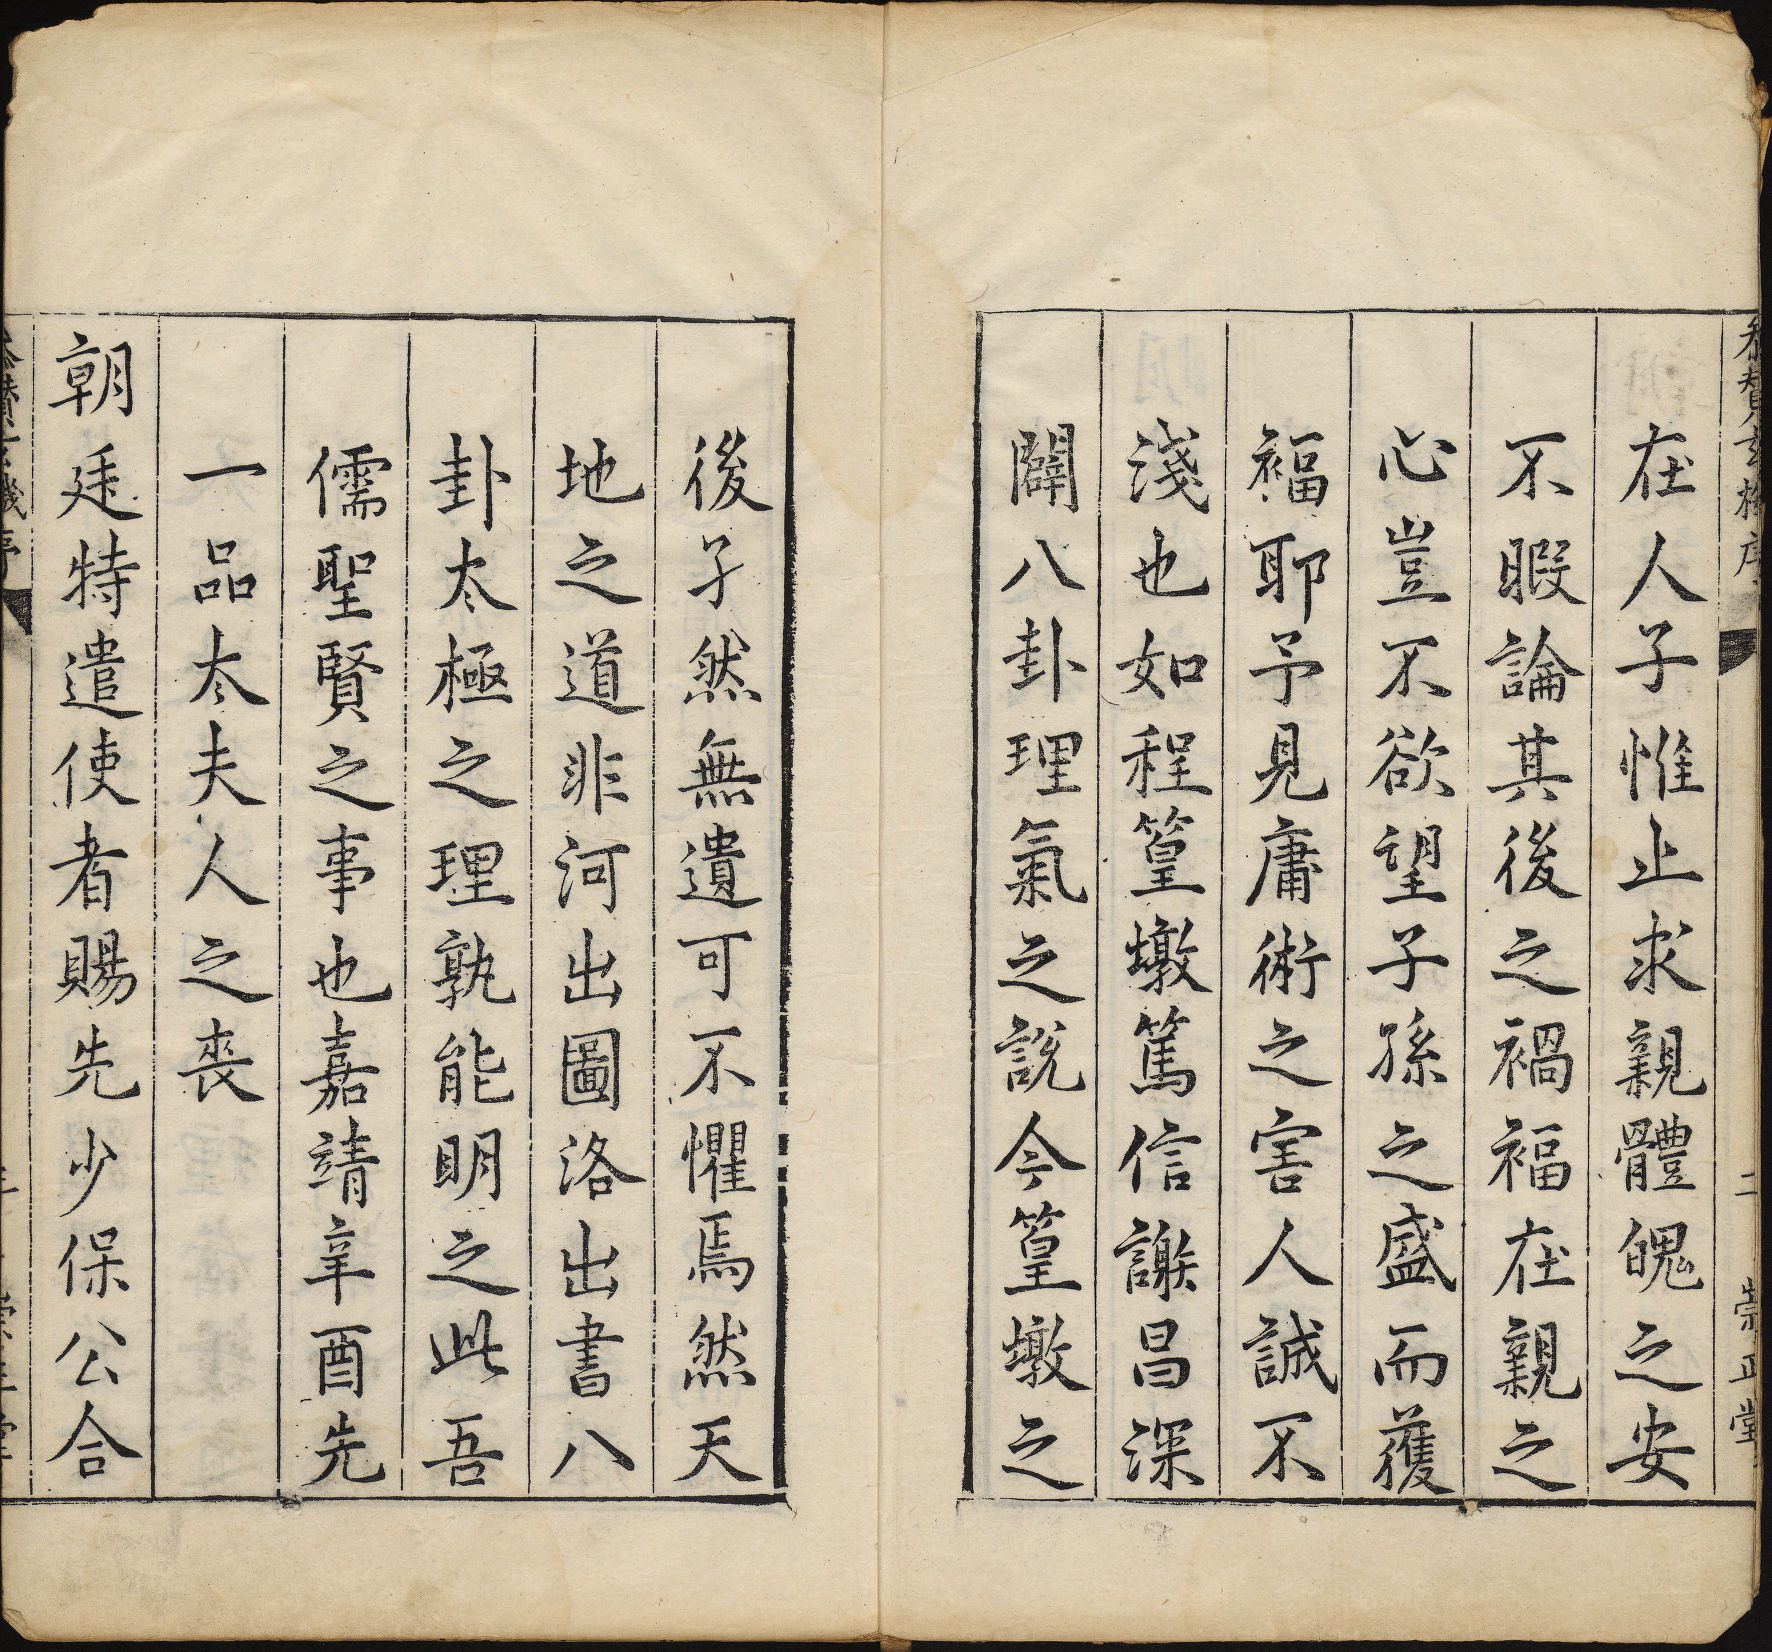 參贊玄機序
二
崇正堂
在人子惟止求親體魄之安
不暇論其後之禍福在親之
心豈不欲望子孫之盛而獲
福耶予見庸術之害人誠不
淺也如程篁墩篤信謝昌深
闢八卦理氣之說今篁墩之
後子然無遺可不懼焉然天
地之道非河出圖洛出書八
卦太極之理孰能明之此吾
儒聖賢之事也嘉靖辛酉先
一品太夫人之喪
朝廷特遣使者賜先少保公合